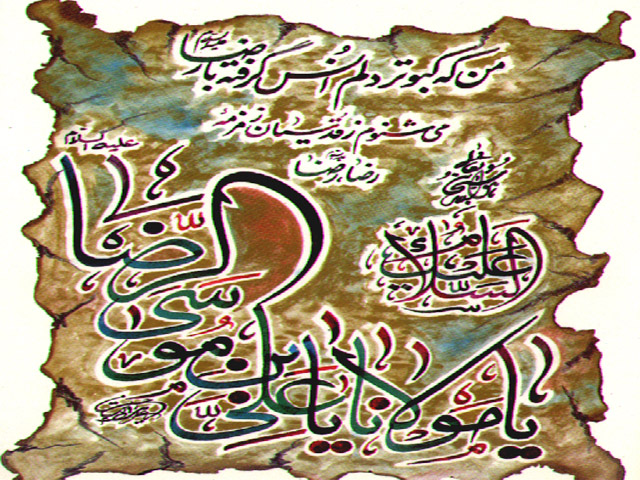 من که کبوتر دلم انس گرفته با رضا علیه السلام
می شنوم ز قدسیان زمزمه
رضا رضا
علیه السلام
السلام علیک
یا مولانا یا علی بن موسی الرضا